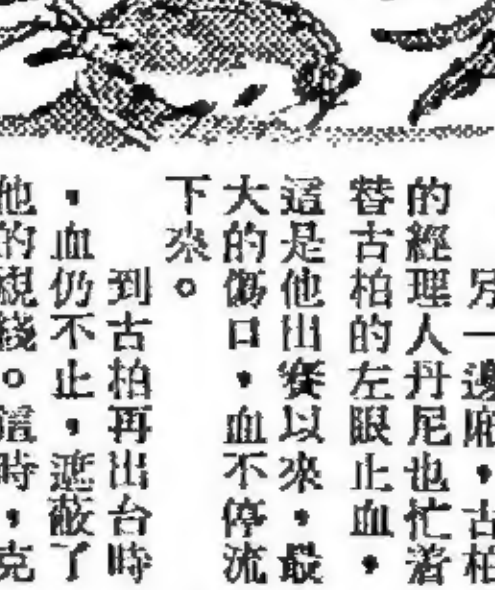 另一邊廂，古柏
的經理人丹尼也忙着
替古柏的左眼止血，
這是他出賽以來，最
大的傷口，血不停流
下來。
到古柏再出台時
，血仍不止，遮蔽了
他的視綫。這時，克